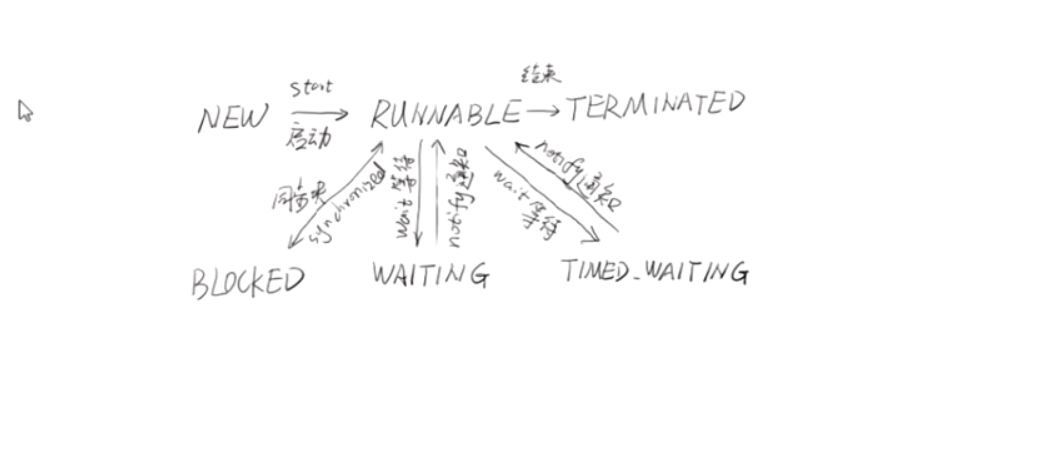 start
结束
NEW
RUNNABLE
TERMINATED
启动
同步
synchronized
wait 等待
notify 通知
wait 等待
notify 通知
BLOCKED
WAITING
TIMED_WAITING